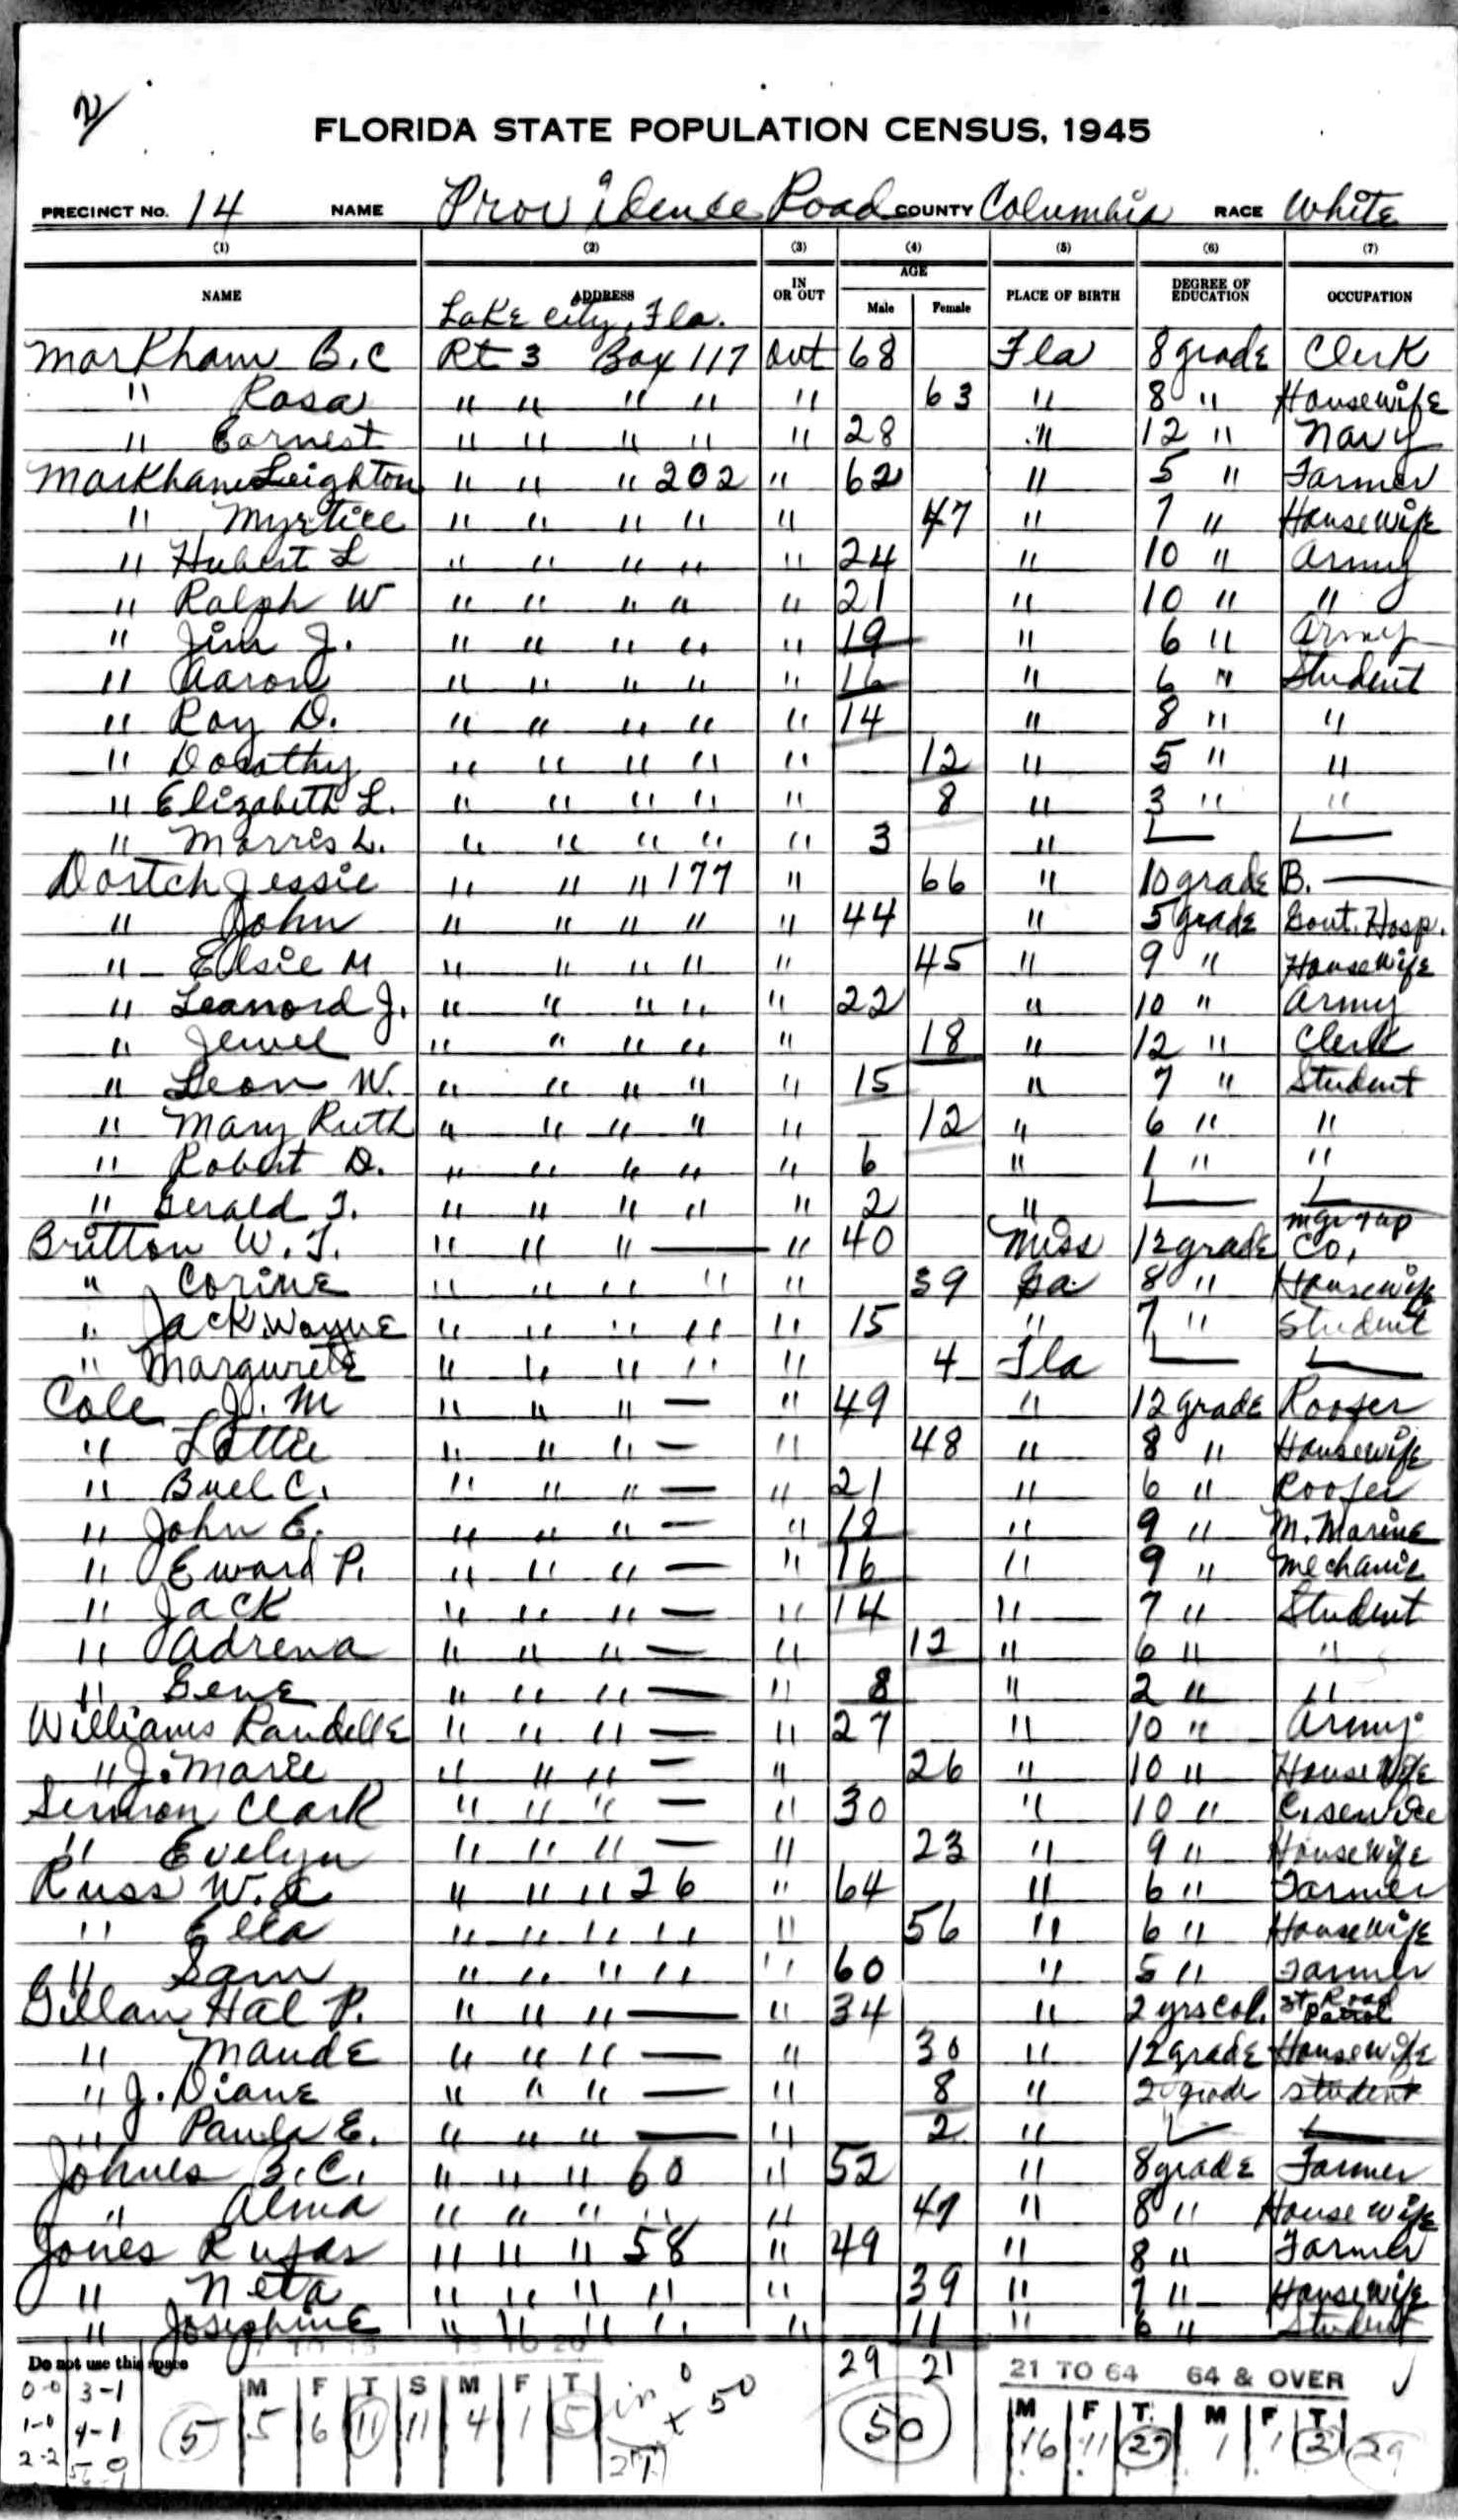 2/
FLORIDA STATE POPULATION CENSUS, 1945
PRECINCT NO. 14 NAME Providence Road COUNTY Columbia RACE White
(1) (2) (3) (4) (5) (6) (7)
NAME ADDRESS IN OR OUT AGE Male Female PLACE OF BIRTH DEGREE OF EDUCATION OCCUPATION
Lake City, Fla.
Markham B.C Rt 3 Box 117 out 68 Fla 8 grade Clerk
" Rosa " " " " " 63 " 8 " Housewife
" Earnest " " " " " 28 " 12 " Navy
Markham Leighton " " " 202 " 62 " 5 " Farmer
" Myrtice " " " " " 47 " 7 " Housewife
" Hubert L " " " " " 24 " 10 " Army
" Ralph W " " " " " 21 " 10 " "
" Jim J. " " " " " 19 " 6 " Army
" Aaron " " " " " 16 " 6 " Student
" Roy D. " " " " " 14 " 8 " "
" Dorothy " " " " " 12 " 5 " "
" Elizabeth L. " " " " " 8 " 3 " "
" Morris L. " " " " " 3 " — —
Dortch Jessie " " " 177 " 66 " 10 grade B. —
" John " " " " " 44 " 5 grade Gout. Hosp.
" Elsie M " " " " " 45 " 9 " Housewife
" Leanord J. " " " " " 22 " 10 " Army
" Jewel " " " " " 18 " 12 " Clerk
" Leon W. " " " " " 15 " 7 " Student
" Mary Ruth " " " " " 12 " 6 " "
" Robert D. " " " " " 6 " 1 " "
" Gerald J. " " " " " 2 " — —
Britton W.J. " " " — " 40 Miss 12 grade mgr Co.
" Corine " " " " " 39 Ga 8 " Housewife
" Jack Wayne " " " " " 15 " 7 " Student
" Margurete " " " " " 4 Fla — —
Cole J. M " " " — " 49 " 12 grade Roofer
" Lottie " " " — " 48 " 8 " Housewife
" Buel C. " " " — " 21 " 6 " Roofer
" John E. " " " — " 18 " 9 " M. Marine
" Eward P. " " " — " 16 " 9 " Mechanic
" Jack " " " — " 14 " 7 " Student
" Adrena " " " — " 12 " 6 " "
" Gene " " " — " 8 " 2 " "
Williams Randelle " " " — " 27 " 10 " Army
" J. Marie " " " — " 26 " 10 " Housewife
Sermon Clark " " " — " 30 " 10 " C. service
" Evelyn " " " — " 23 " 9 " Housewife
Russ W. A " " " 26 " 64 " 6 " Farmer
" Ella " " " " " 56 " 6 " Housewife
" Sam " " " " " 60 " 5 " Farmer
Gillan Hal P. " " " — " 34 " 2 yrs Col. St. Road Patrol
" Maude " " " — " 30 " 12 grade Housewife
" J. Diane " " " — " 8 " 2 grade Student
" Paula E. " " " — " 2 " — —
Johnes C. " " " 60 " 52 " 8 grade Farmer
" Alma " " " " " 47 " 8 " Housewife
Jones Rufas " " " 58 " 49 " 8 " Farmer
" Neta " " " " " 39 " 7 " Housewife
" Josephine " " " " " 11 " 6 " Student
Do not use this space
29 21 21 TO 64 64 & OVER ✓
0-0 3-1 M F T S M F T in 0 M F T. M F T
1-0 4-1 5 5 6 11 11 4 1 5 x 50 50 16 11 27 1 1 2 29
2-2 27